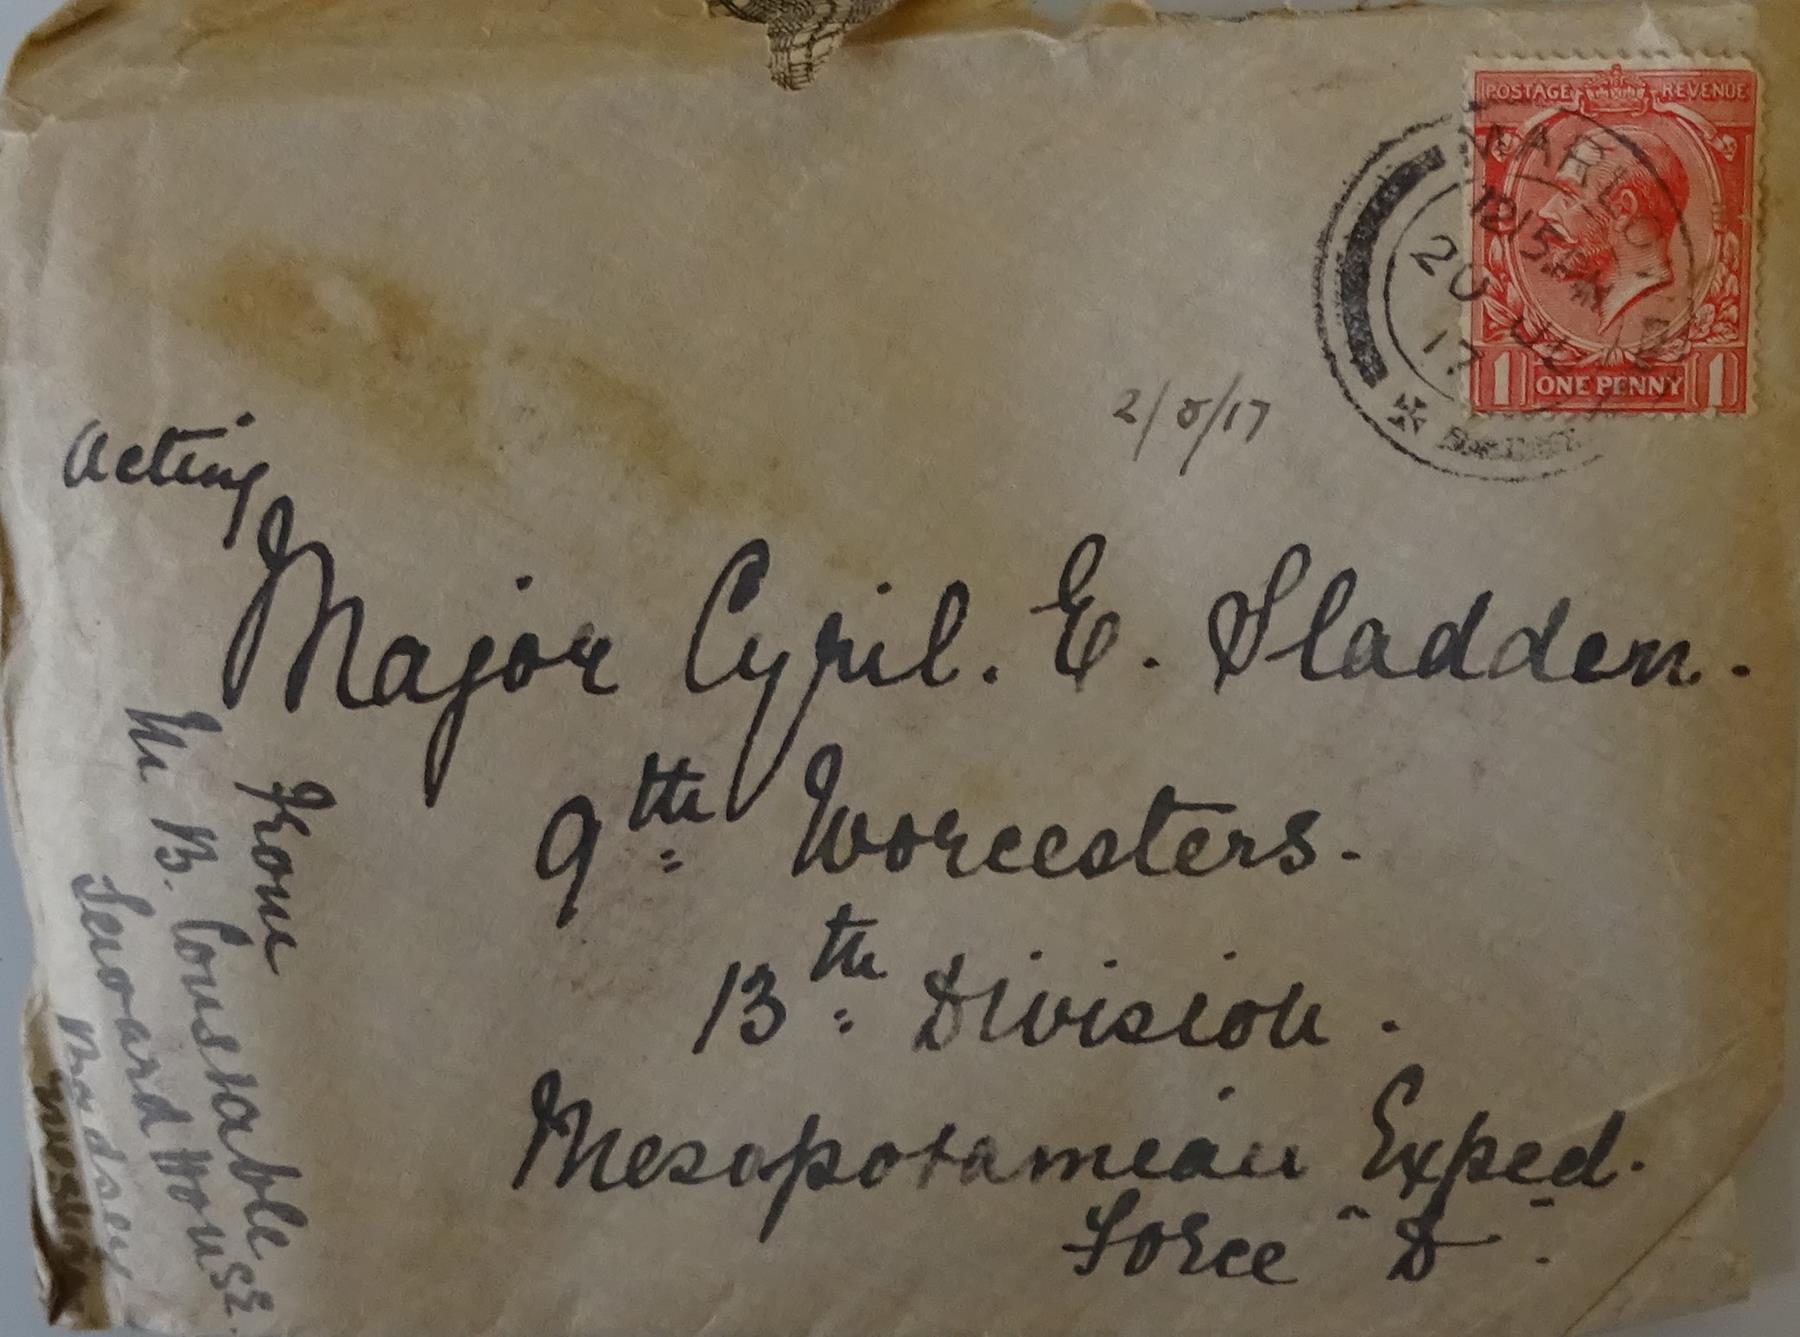 POSTAGE REVENUE
MARLOW
12 15 PM
20 JL
17
1 ONE PENNY 1
2/8/17
Acting
Major Cyril. E. Sladden.
9th Worcesters.
13th Division.
Mesopotamian Exped.
Force "D".
From
M B. Constable
Seward House
Badsey